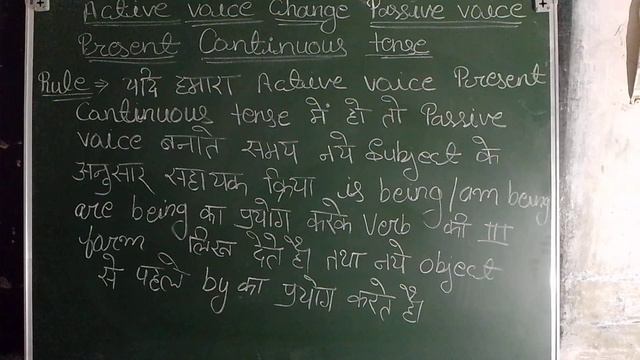 Active voice Change Passive voice
Present Continuous tense
Rule ⇒ यदि हमारा Active voice Present
Continuous tense में हो तो Passive
voice बनाते समय नये Subject के
अनुसार सहायक क्रिया is being/am being
are being का प्रयोग करके Verb की III
form लिख देते है। तथा नये object
से पहले by का प्रयोग करते है।